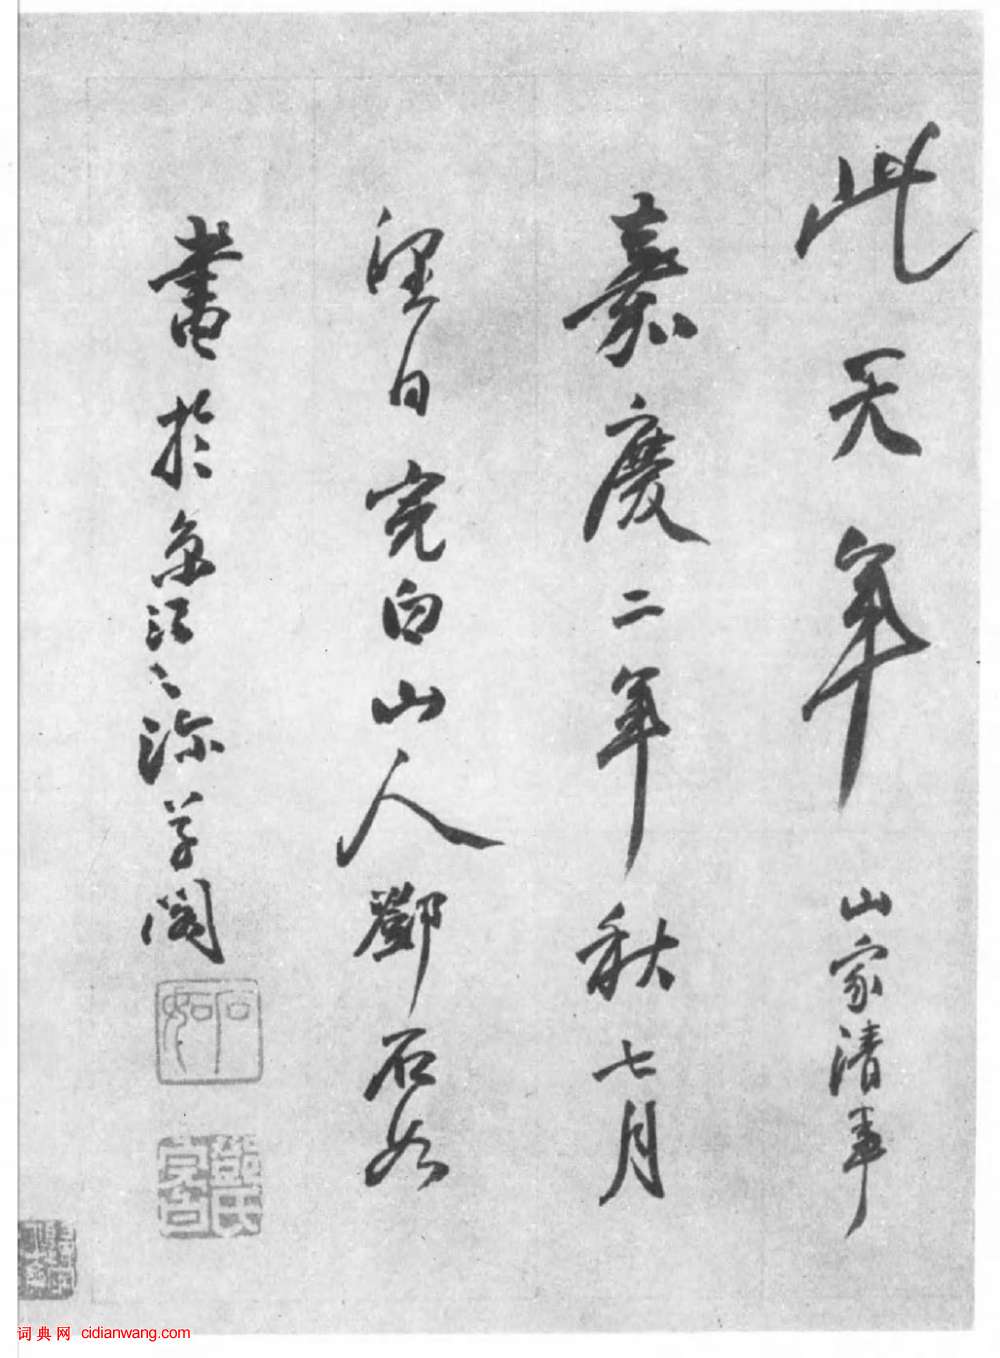 此天年 山家清事
嘉慶二年秋七月
望日完白山人鄧石如
書於京江之
閣
石如
鄧氏完白
词典网 cidianwang.com